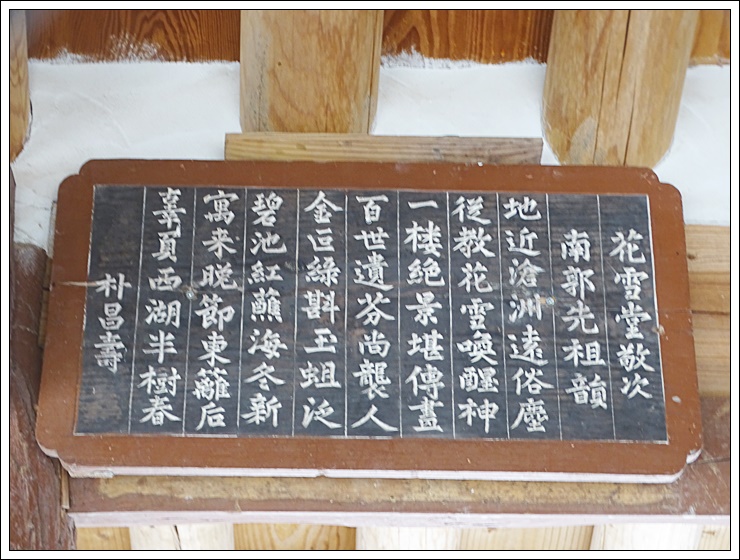 花雪堂敬次
南郭先祖韻
地近滄洲遠俗塵
從教花雪喚醒神
一樓絕景堪傳畫
百世遺芬尚襲人
金豆綠斟玉蛆泛
碧池紅蘸海冬新
寓来晩節東籬后
辜負西湖半樹春
朴昌壽